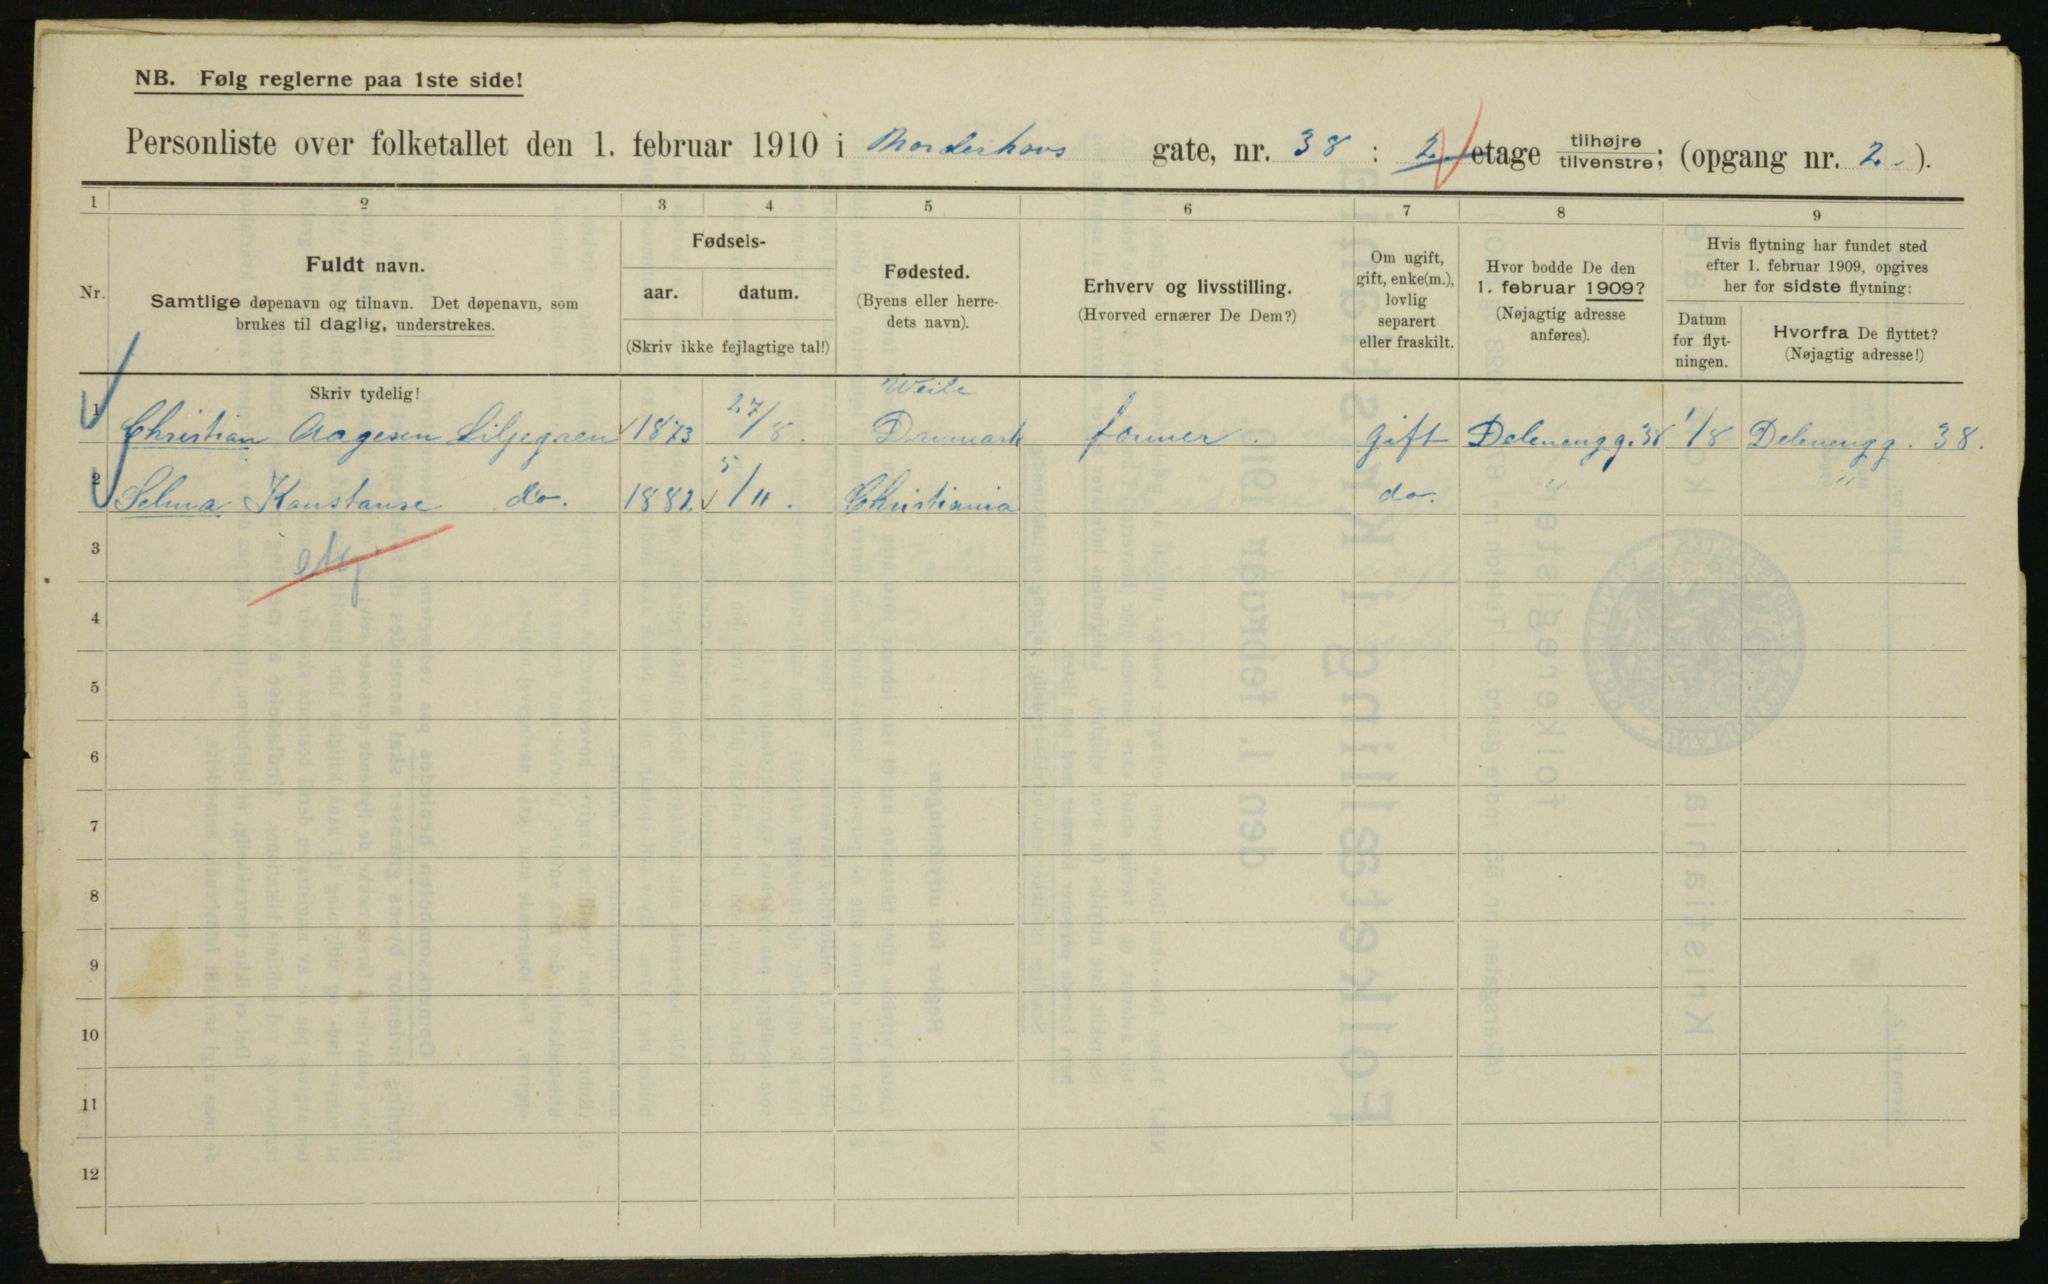 NB. Følg reglerne paa 1ste side!
Personliste over folketallet den 1. februar 1910 i Norderhovs gate, nr. 38 : 2 etage tilhøjre tilvenstre; (opgang nr. 2. ).
1 2 3 4 5 6 7 8 9
Nr.
Fuldt navn.
Samtlige døpenavn og tilnavn. Det døpenavn, som
brukes til daglig, understrekes.
Fødsels-
aar. datum.
(Skriv ikke fejlagtige tal!)
Fødested.
(Byens eller herre-
dets navn).
Erhverv og livsstilling.
(Hvorved ernærer De Dem?)
Om ugift,
gift, enke(m.),
lovlig
separert
eller fraskilt.
Hvor bodde De den
1. februar 1909?
(Nøjagtig adresse
anføres).
Hvis flytning har fundet sted
efter 1. februar 1909, opgives
her for sidste flytning:
Datum
for flyt-
ningen.
Hvorfra De flyttet?
(Nøjagtig adresse!)
Skriv tydelig!
Weile
1 Christian Aagesen Liljegren 1873 27/8. Danmark former. gift Delenengg. 38 1/8 Delenengg. 38.
2 Selma Konstanse do. 1882 5/11. Christiania do. " "
3
4
5
6
7
8
9
10
11
12